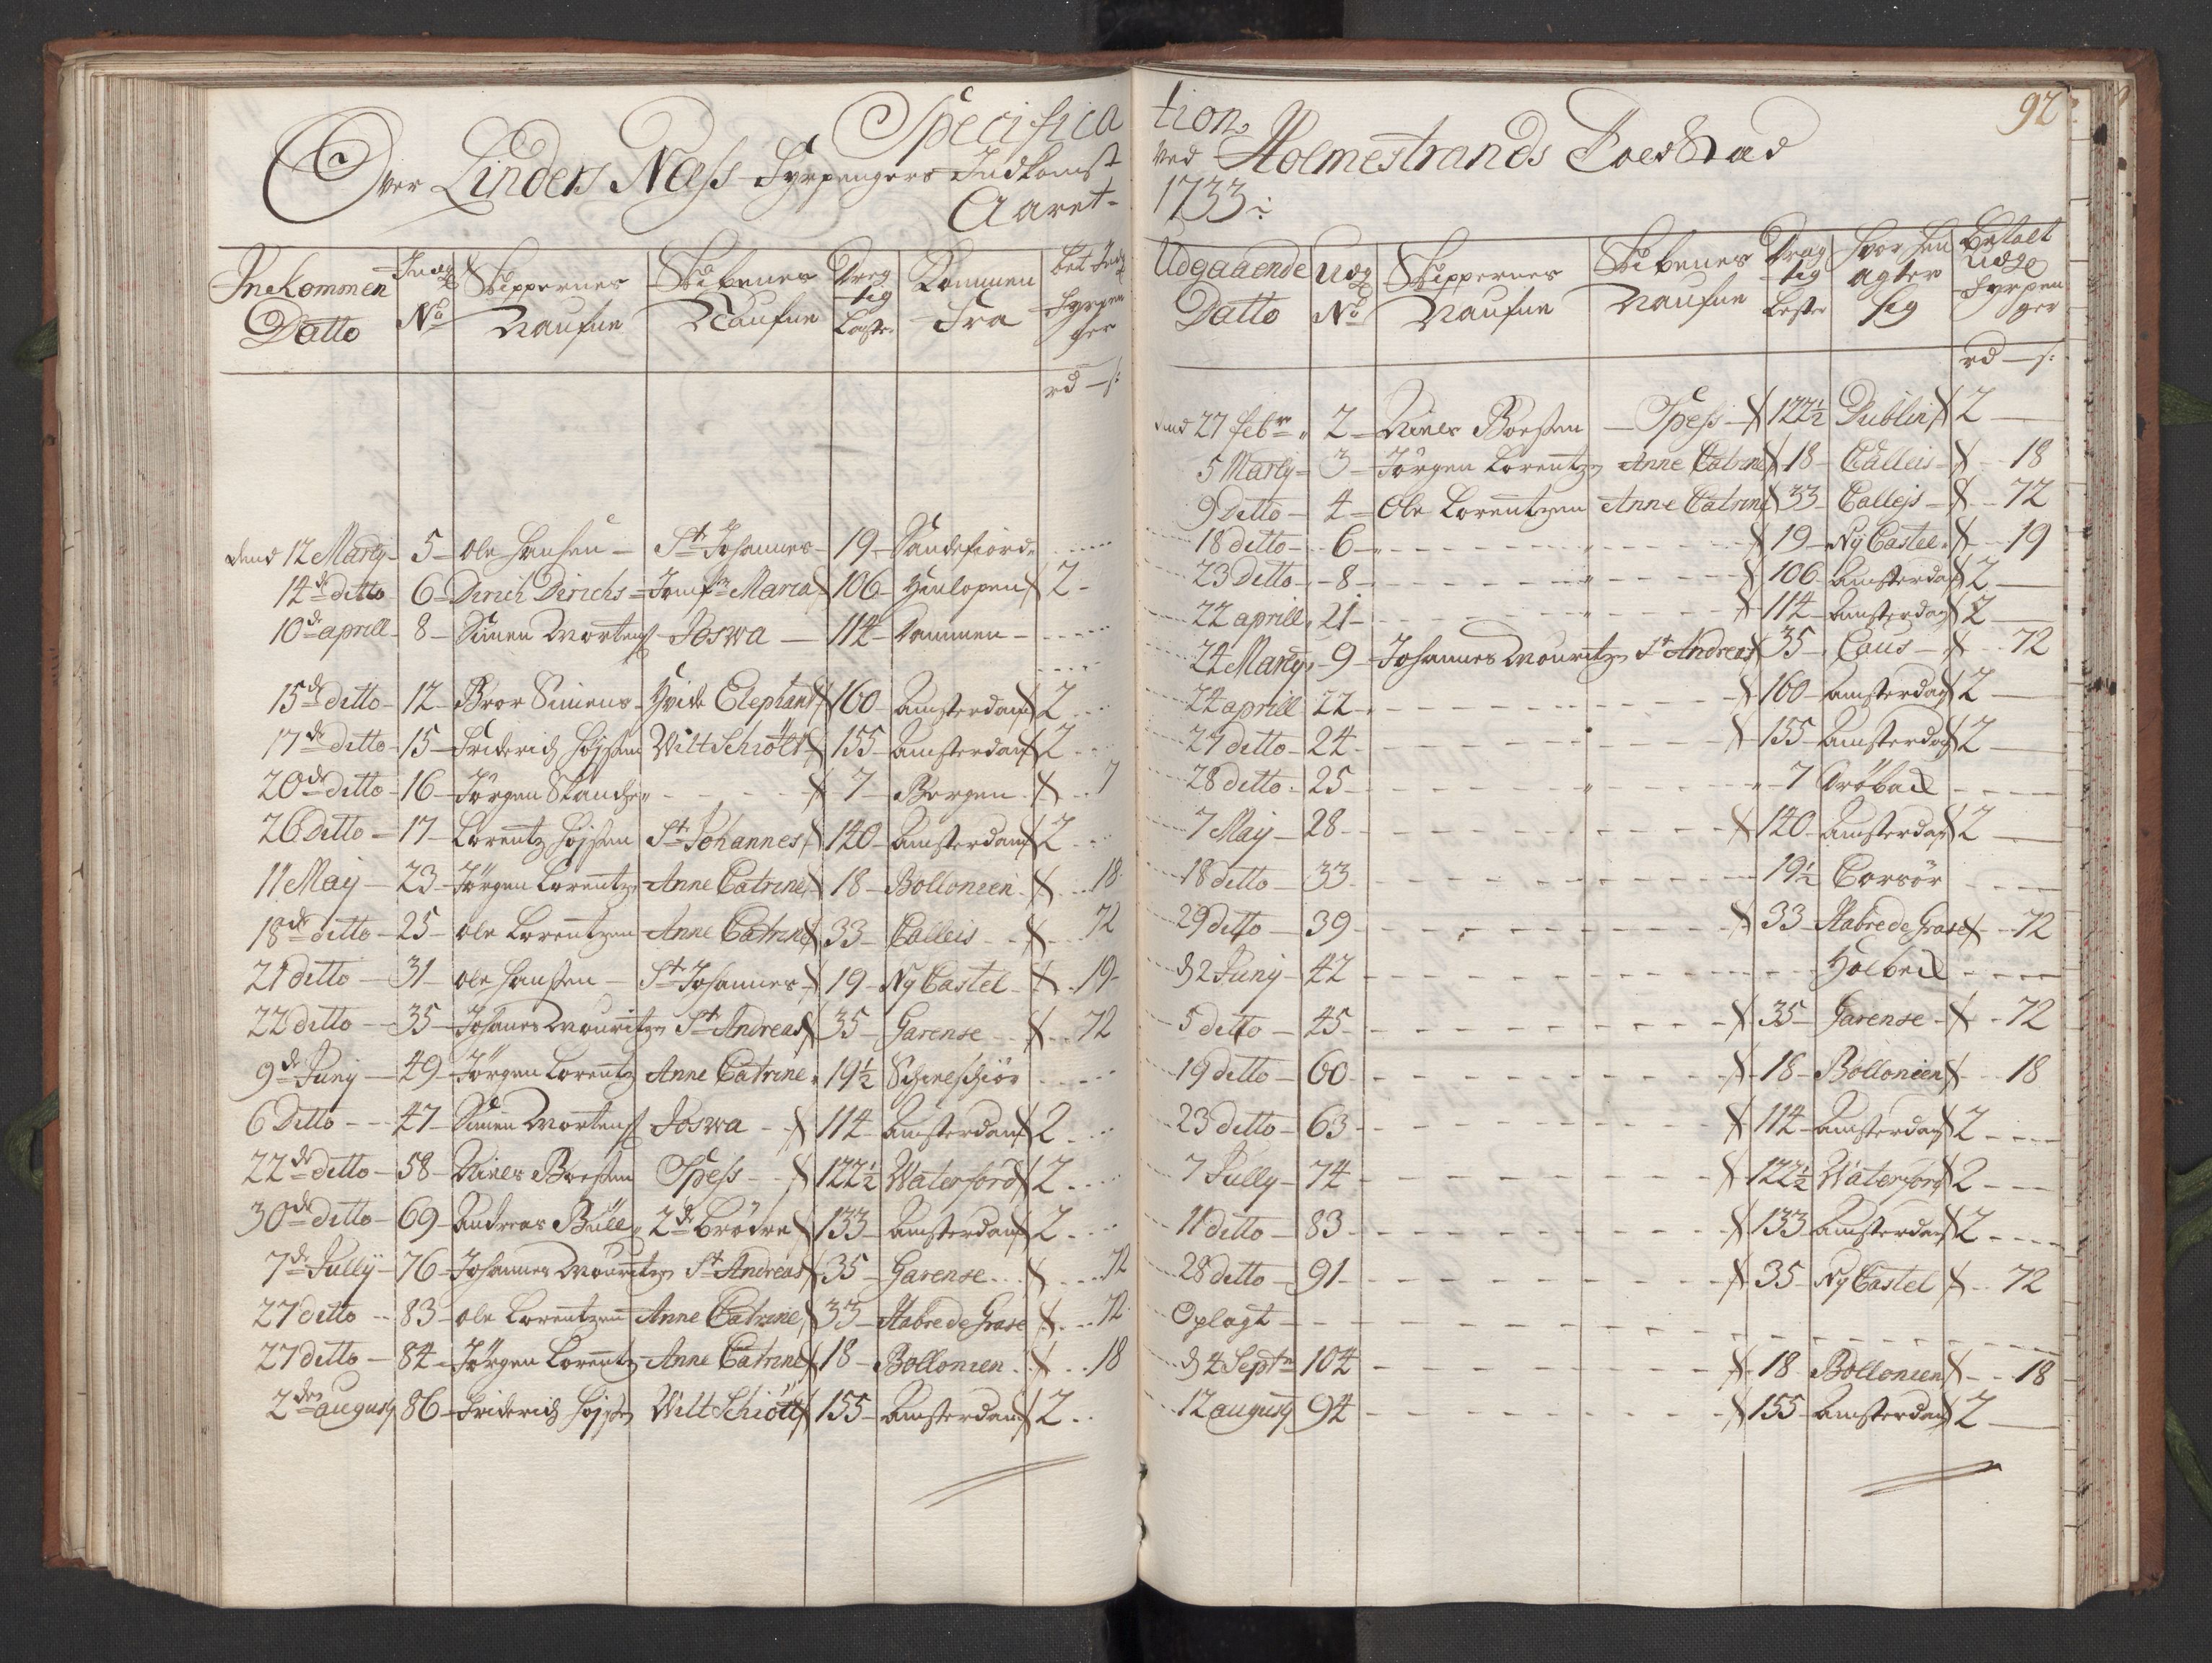 Specifica
Over Linders Næss Fyrpengers Indkomst
Aaret
Inckommen Datto
Indg No
Skippernes Naufne
Skibenes Naufne
Dregtig Lester
Kommen Fra
bet Indg Fyrpenger
rd — s:
dend 12 Martij 5 Ole Hansen St Johannes 19 Sandefiord
14de ditto 6 Dirich Dirichs Jomfr Maria 106 Henlopen 2
10de aprill 8 Simen Mortens Joswa 114 Drammen
15de ditto 12 Bror Simens Hvide Elephant 160 Amsterdam 2
17de ditto 15 Friderich Hojssen Wilt Schiött 155 Amsterdam 2
20de ditto 16 Jörgen Stanche 7 Bergen 7
26 Ditto 17 Lorentz Hojssen St Johannes 140 Amsterdam 2
11 Maij 23 Jörgen Lorentz Anne Catrine 18 Bollonien 18
18de ditto 25 Ole Lorentzen Anne Catrine 33 Calleis 72
21 ditto 31 Ole Hansen St Johannes 19 Ny Castel 19
22 ditto 35 Johanes Mouritz St Andreas 35 Garense 72
9de Junij 49 Jörgen Lorentz Anne Catrine 19½ Schelschiör
6 Ditto 47 Simen Mortens Joswa 114 Amsterdam 2
22de ditto 58 Niels Boessen Spess 122½ Waterford 2
30de ditto 69 Andreas Bull 2de Brödre 133 Amsterdam 2
7de Jullij 76 Johannes Mouritz St Andreas 35 Garense 72
27 ditto 83 Ole Lorentzen Anne Catrine 33 Habre de Grase 72
27 ditto 84 Jörgen Lorentz Anne Catrine 18 Bollonien 18
2den augusty 86 Friderich Hojss Wilt Schiött 155 Amsterdam 2
92
tion
ved Holmestrands Toldstæd
1733:
Udgaaende Datto
Udg No
Skippernes Naufne
Skibenes Naufne
Dragtig Lester
Hvor hen agter sig
Betalt Udg Fyrpenger
rd — s:
dend 27 febr 2 Niels Boessen Spess 122½ Dublin 2
5 Martij 3 Jörgen Lorentz Anne Catrine 18 Calleis 18
9 Ditto 4 Ole Lorentzen Anne Catrine 33 Callejs 72
18 ditto 6 19 Ny Castel 19
23 Ditto 8 106 Amsterdam 2
22 aprill 21 114 Amsterdam 2
24 Martij 9 Johannes Mouritz St Andreas 35 Caus 72
24 aprill 22 160 Amsterdam 2
27 ditto 24 155 Amsterdam 2
28 ditto 25 7 Dröback
7 Maij 28 140 Amsterdam 2
18 ditto 33 19½ Corsör
29 ditto 39 33 Habre de Grase 72
d 2 Junij 42 Holbeck
5 ditto 45 35 Garense 72
19 ditto 60 18 Bollonien 18
23 ditto 63 114 Amsterdam 2
7 Jully 74 122½ Waterford 2
11 ditto 83 133 Amsterdam 2
28 ditto 91 35 Ny Castel 72
Oplagt
d 4 Septr 104 18 Bollonien 18
12 augusty 94 155 Amsterdam 2